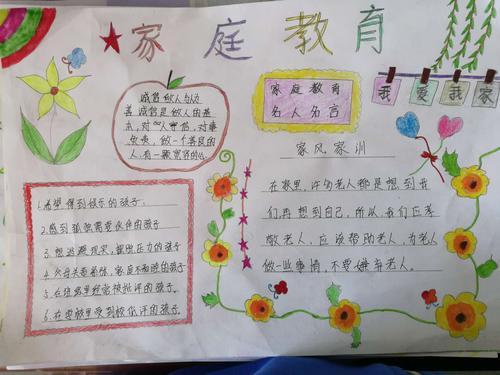 家庭教育
诚信做人与友
善诚信是做人的基
本,对人守信,对事
负责,做一个善良的
人,有一颗宽容的心
家庭教育
名人名言
我爱我家
家风家训
在家里,许多老人都是想到我
们再想到自己,所以我们应孝
敬老人,应该帮助老人,为老人
做一些事情,不要嫌弃老人。
1.希望得到快乐的孩子。
2.感到孤独需要伙伴的孩子
3.想逃避现实,摆脱压力的孩子
4.父母关系紧张,家庭不和睦的孩子
5.在班里经常被批评的孩子。
6.在学校里受到校批评的孩子。